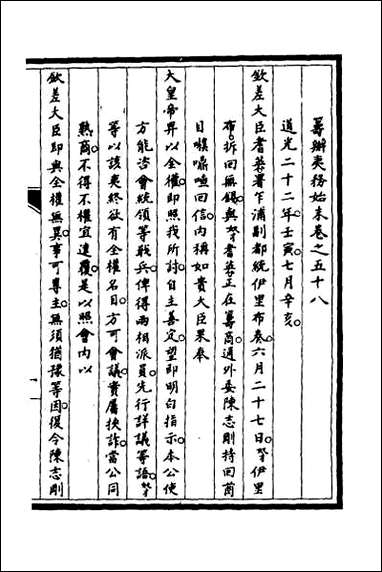 籌辦夷務始末卷之五十八
道光二十二年壬寅七月辛亥
欽差大臣耆英署乍浦副都統伊里布奏六月二十七日奴才伊里
布折回無錫與奴才耆英正在籌商適外委陳志剛持回䓪
目㗎嚧喳回信內稱如貴大臣果奉
大皇帝畀以全權即照我所討自主善定望即明白指示本公使
方能咨會統領等戢兵俾得兩相派員先行詳議等語奴才
等以該夷終欲有全權名目方可會議實屬挾詐當公同
熟商不得不權宜速覆是以照會內以
欽差大臣即與全權無異事可專主無須猶豫等因復令陳志剛